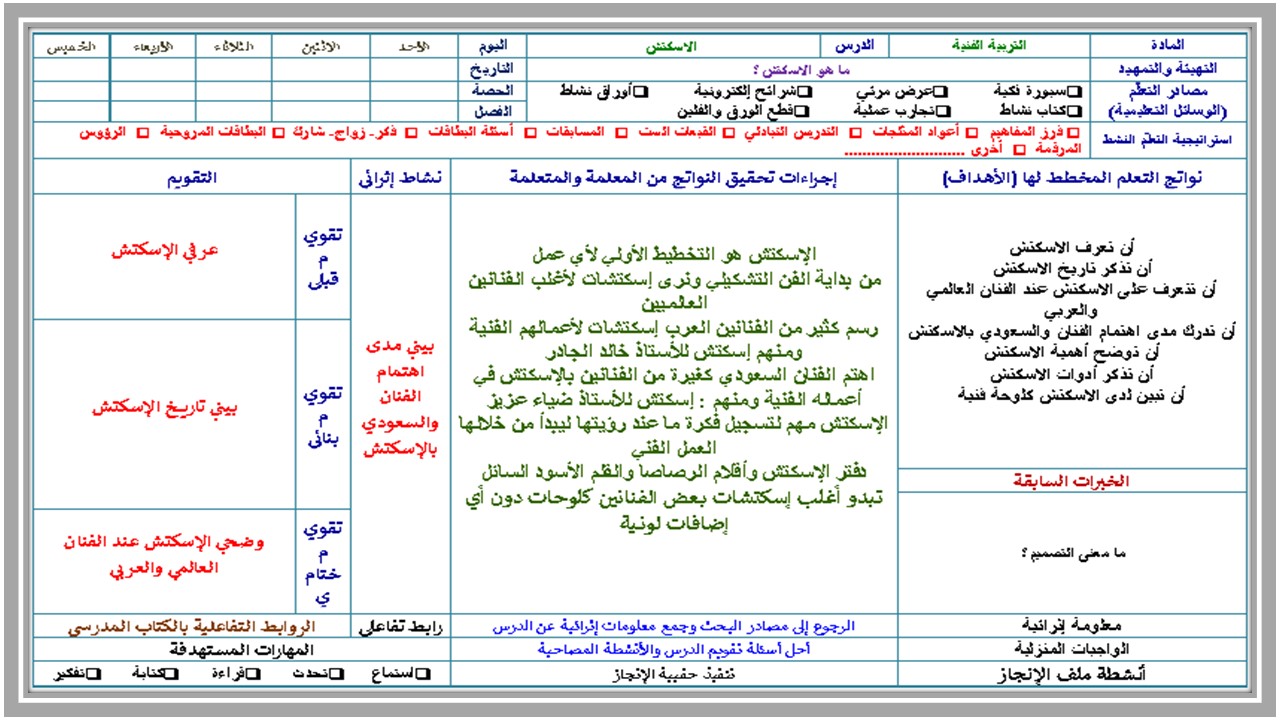 المادة التربية الفنية الدرس الاسكتش اليوم الأحد الاثنين الثلاثاء الأربعاء الخميس
التهيئة والتمهيد ما هو الاسكتش ؟ التاريخ
مصادر التعلّم
(الوسائل التعليمية)
سبورة ذكية عرض مرئي شرائح إلكترونية أوراق نشاط
كتاب نشاط تجارب عملية قطع الورق والفلين
الحصة
الفصل
استراتيجية التعلّم النشط
فرز المفاهيم أعواد المثلجات التدريس التبادلي القبعات الست المسابقات أسئلة البطاقات فكر- زواج- شارك البطاقات المروحية الرؤوس
المرقمة أخرى ..........................
نواتج التعلم المخطط لها (الأهداف) إجراءات تحقيق النواتج من المعلمة والمتعلمة نشاط إثرائى التقويم
أن تعرف الاسكتش
أن تذكر تاريخ الاسكتش
أن تتعرف على الاسكتش عند الفنان العالمي
والعربي
أن تدرك مدى اهتمام الفنان والسعودي بالاسكتش
أن توضح أهمية الاسكتش
أن تذكر أدوات الاسكتش
أن تبين لدى الاسكتش كلوحة فنية
الخبرات السابقة
ما معنى التصميم ؟
الإسكتش هو التخطيط الأولي لأي عمل
من بداية الفن التشكيلي ونرى إسكتشات لأغلب الفنانين
العالميين
رسم كثير من الفنانين العرب إسكتشات لأعمالهم الفنية
ومنهم إسكتش للأستاذ خالد الجادر
اهتم الفنان السعودي كغيرة من الفنانين بالإسكتش في
أعماله الفنية ومنهم : إسكتش للأستاذ ضياء عزيز
الإسكتش مهم لتسجيل فكرة ما عند رؤيتها ليبدأ من خلالها
العمل الفني
دفتر الإسكتش وأقلام الرصاصا والقلم الأسود السائل
تبدو أغلب إسكتشات بعض الفنانين كلوحات دون أي
إضافات لونية
بيني مدى
اهتمام
الفنان
والسعودي
بالإسكتش
تقوي
م
قبلى
عرفي الإسكتش
تقوي
م
بنائى
بيني تاريخ الإسكتش
تقوي
م
ختام
ي
وضحي الإسكتش عند الفنان
العالمي والعربي
معلومة إثرائية الرجوع إلى مصادر البحث وجمع معلومات إثرائية عن الدرس رابط تفاعلى الروابط التفاعلية بالكتاب المدرسى
الواجبات المنزلية أحل أسئلة تقويم الدرس والأنشطة المصاحبة المهارات المستهدفة
أنشطة ملف الإنجاز تنفيذ حقيبة الإنجاز استماع تحدث قراءة كتابة تفكير